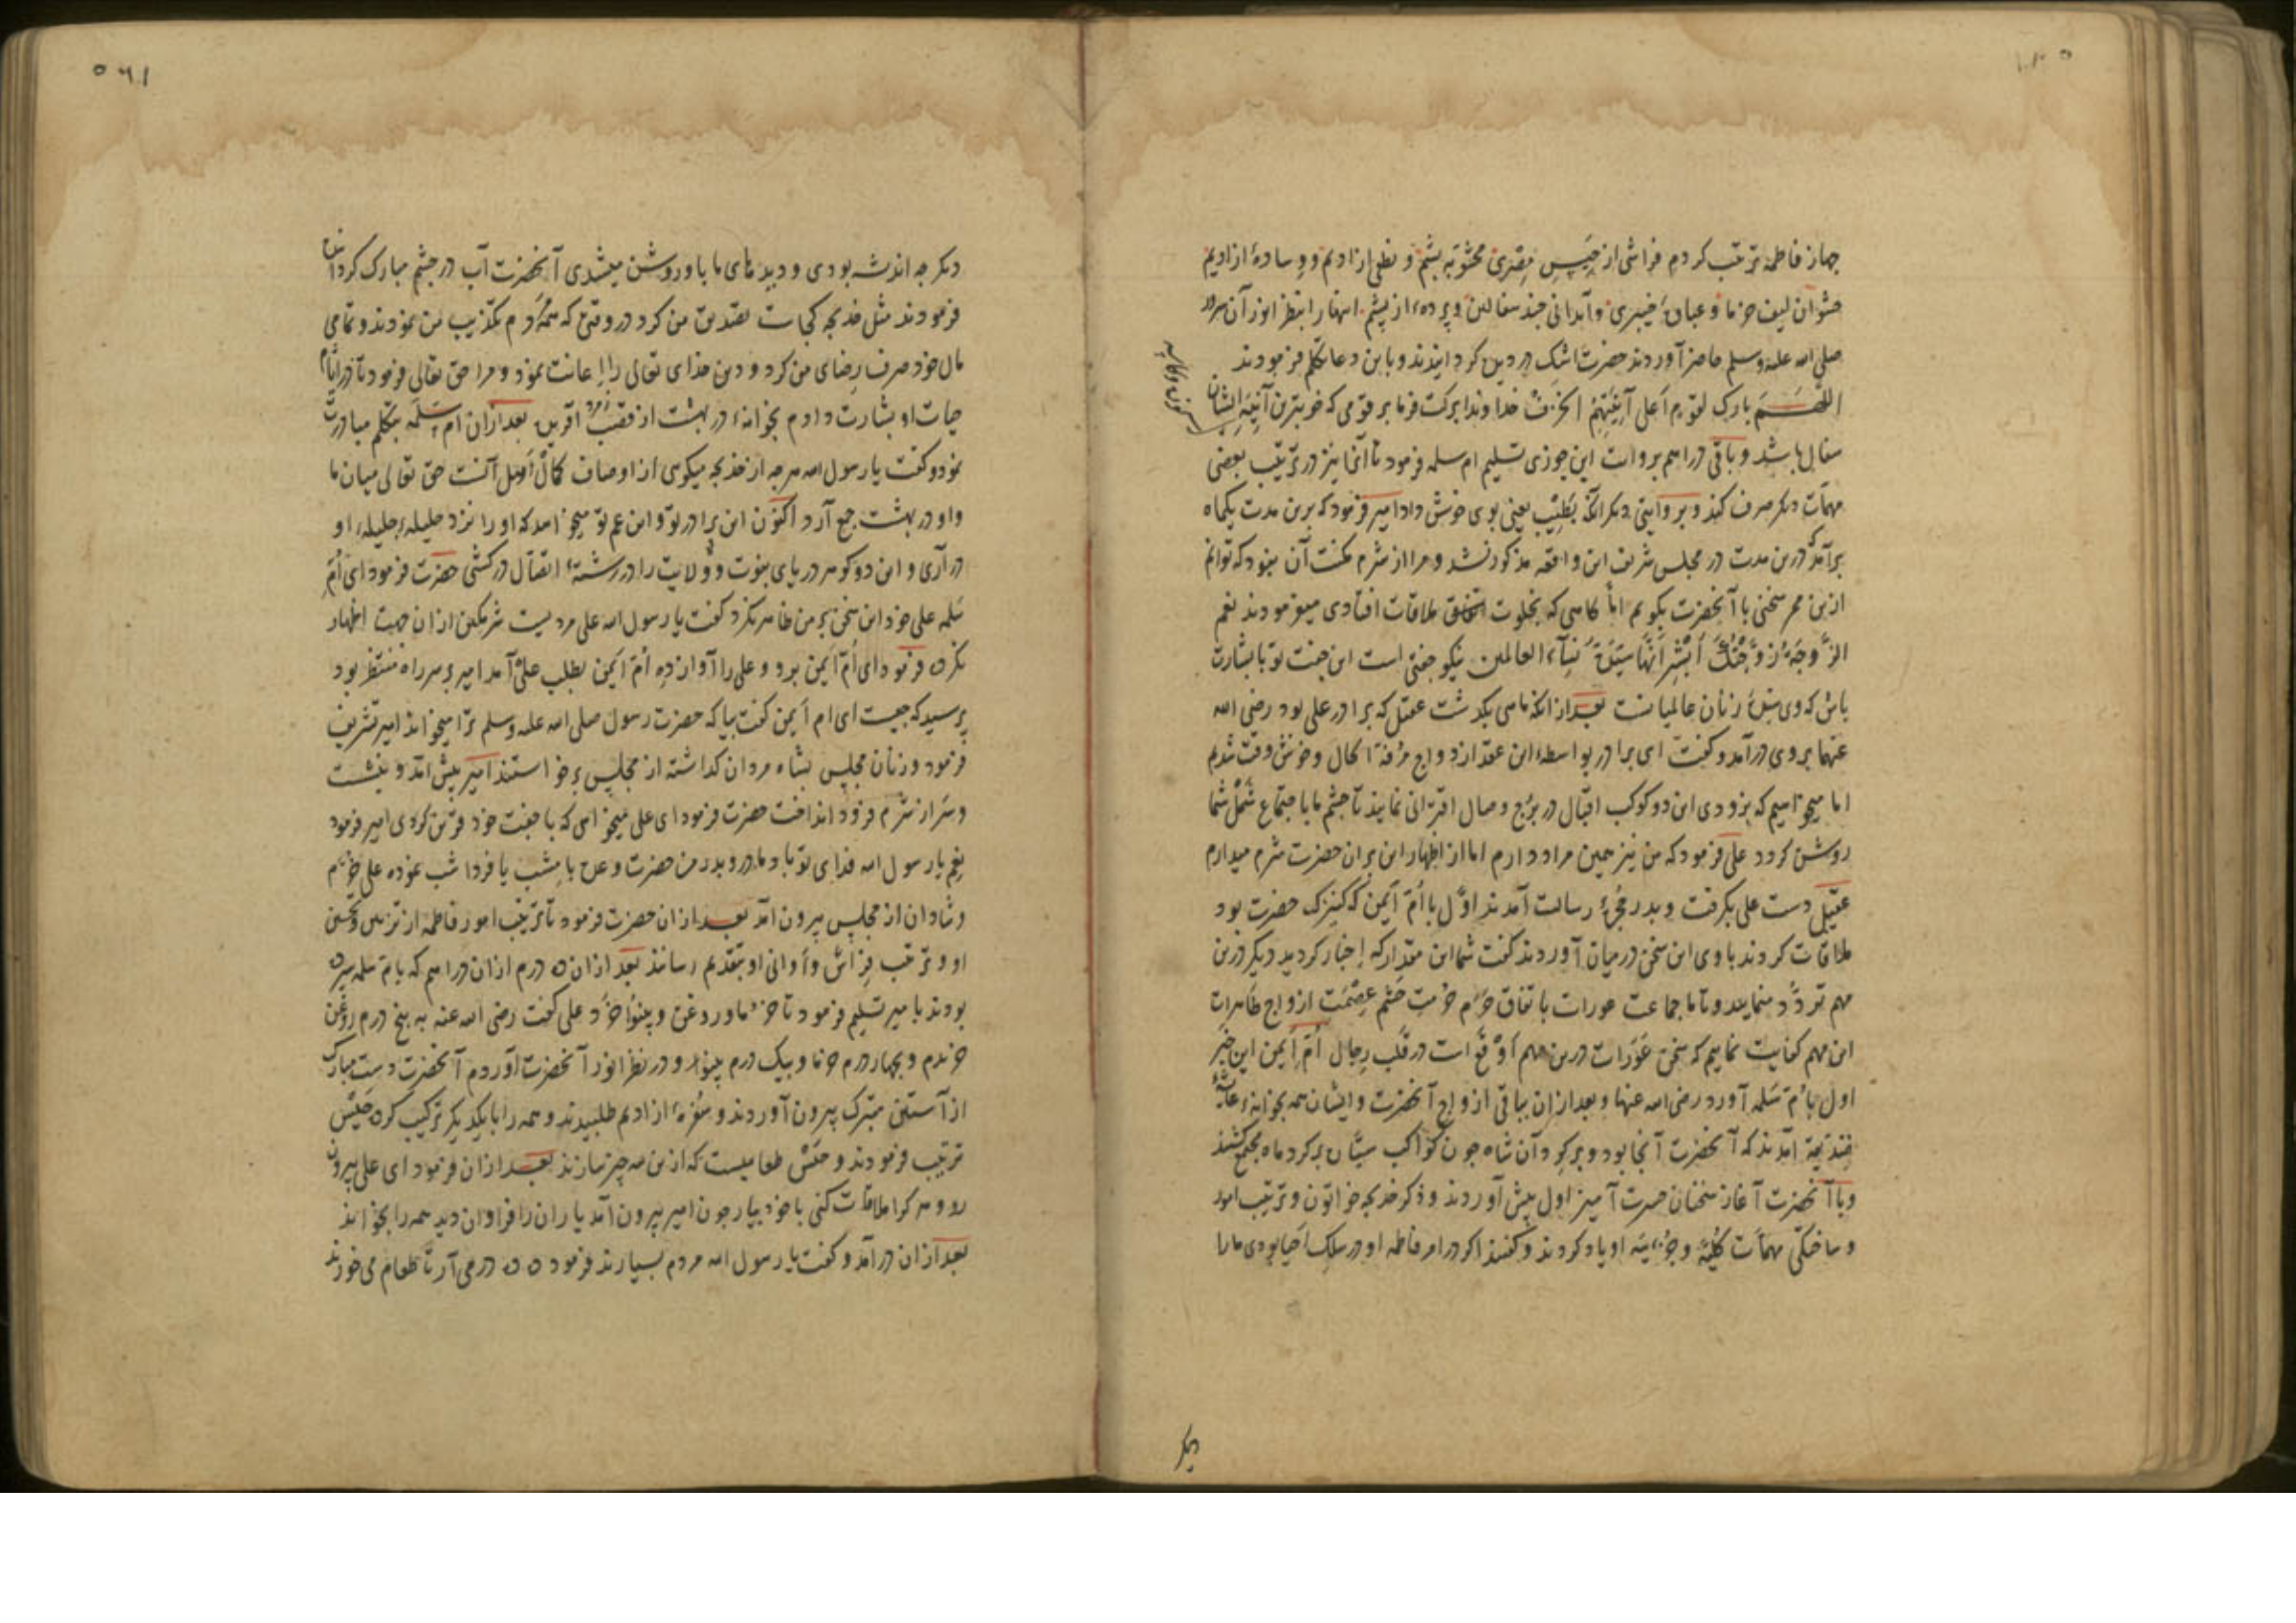 جهاز فاطمه ترتیب کردم فراشی از خیس مصری محشو به پشم و نطعی از ادیم و وساده از ادیم
حشو آن لیف خرما و عباء خیبری و آبدانی چند سفالین و پرده از پشم اینها را بنظر انور آن سرور
صلی الله علیه وسلم حاضر آوردند حضرت اشک در دیده کردانیدند و باین دعا تکلم فرمودند
اللهم بارک لقوم اعلی آنیتهم الخزف خداوندا برکت فرما بر قومی که خوبترین آنیه ایشان
سفال باشد و باقی دراهم بروایت ابن جوزی تسلیم ام سلمه فرمود تا آنرا نیز در ترتیب بعضی
مهمات دیکر صرف کند و بروایتی دیکر آنکه بطیب یعنی بوی خوش داد امیر فرمود که برین مدت یکماه
برآمد که درین مدت در مجلس شریف این واقعه مذکور نشد و مرا از شرم مکنت آن نبود که توانم
ازین ممر سخنی با آنحضرت بکویم اما کاهی که بخلوت اتفاق ملاقات افتادی میفرمودند نعم
الزوجة زوجتک ابشر انها سیدة نساء العالمین نیکو جفتی است این جفت تو با بشارت
باش که وی سیده زنان عالمیانست بعد از آنکه ماهی بکذشت عقیل که برادر علی بود رضی الله
عنهما بر وی درآمد و کفت ای برادر بواسطه این عقد ازدواج مرفه الحال و خوش وقت شدیم
اما میخواهیم که بزودی این دو کوکب اقبال در برج وصال اقترانی نمایند تا چشم ما باجتماع شمل شما
روشن کردد علی فرمود که من نیز همین مراد دارم اما از اظهار این بران حضرت شرم میدارم
عقیل دست علی بکرفت و بدر حجره رسالت آمدند اول با ام ایمن که کنیزک حضرت بود
ملاقات کردند با وی این سخن درمیان آوردند کفت شما این مقدار که اخبار کردید دیکر درین
مهم تردد منمایید و تا ما جماعت عورات باتفاق حرم حرمت حشم عصمت ازواج طاهرات
این مهم کفایت نماییم که سخن عورات درین مهم اوقع است در قلب رجال ام ایمن این خبر
اول بام سلمه آورد رضی الله عنها و بعد ازان بباقی ازواج آنحضرت و ایشان همه بخانه عایشه
صدیقه آمدند که آنحضرت آنجا بود و برکرد آن شاه چون کواکب سیار برکرد ماه مجتمع کشتند
و با آنحضرت آغاز سخنان حسرت آمیز اول پیش آوردند و ذکر خدیجه خواتون و ترتیب امور
و ساختکی مهمات کلیه و جزئیه او یاد کردند و کفتند اکر در امر فاطمه او در سلک احیا بودی ما را
دیکر
دیکر چه اندیشه بودی و دیدهای ما باو روشن میشدی آنحضرت آب در چشم مبارک کردانیدند
فرمودند مثل خدیجه کجاست تصدیق من کرد در وقتی که همه مردم تکذیب من نمودند و تمامی
مال خود صرف رضای من کرد و دین خدای تعالی را اعانت نمود و مرا حق تعالی فرمود تا در ایام
حیات او بشارت دادم بخانه در بهشت از قصب زمرد آفرین بعد ازان ام سلمه بتکلم مبادرت
نمود و کفت یا رسول الله هرچه از خدیجه میکوی از اوصاف کمال اهل آنست حق تعالی میان ما
و او در بهشت جمع آرد اکنون این برادر تو و ابن عم تو میخواهد که او را نزد حلیله جلیله او
درآری و این دو کوهر دریای نبوت و ولایت را در رشته اتصال درکشی حضرت فرمود ای ام
سلمه علی خود این سخن بر من ظاهر نکرد کفت یا رسول الله علی مردیست شرمکین ازان جهت اظهار
نکرده فرمود ای ام ایمن برو و علی را آواز ده ام ایمن بطلب علی آمد امیر بر سر راه منتظر بود
پرسید که چیست ای ام ایمن کفت بیا که حضرت رسول صلی الله علیه وسلم ترا میخواند امیر تشریف
فرمود و زنان مجلس بشاه مردان کذاشته از مجلس برخواستند امیر پیش آمد و بنشست
و سر از شرم فرود انداخت حضرت فرمود ای علی میخواهی که با جفت خود قرین کردی امیر فرمود
نعم یا رسول الله فدای تو باد مادر و پدر من حضرت وعده بامشب یا فردا شب نموده علی خرم
و شادان از مجلس بیرون آمد بعد ازان حضرت فرمود تا ترتیب امور فاطمه از تزیین و تحسین
او و ترتیب فراش و اوانی او بتقدیم رسانند بعد ازان ده درم ازان دراهم که بام سلمه سپرده
بودند با میر تسلیم فرمود تا خرما و روغن و پنو خرد علی کفت رضی الله عنه به پنج درم روغن
خریدم و بچهار درم خرما و بیک درم پنو و در نظر انور آنحضرت آوردم آنحضرت دست مبارک
از آستین متبرک بیرون آوردند و سفره از ادیم طلبیدند و همه را با یکدیکر ترکیب کرده حیس
ترتیب فرمودند و حیس طعامیست که ازین سه چیز سازند بعد ازان فرمود ای علی بیرون
رو و هر کرا ملاقات کنی با خود بیار چون امیر بیرون آمد یاران را فراوان دید همه را بخواند
بعد ازان درآمد و کفت یا رسول الله مردم بسیارند فرمود ده ده درمی آر تا طعام می خورند